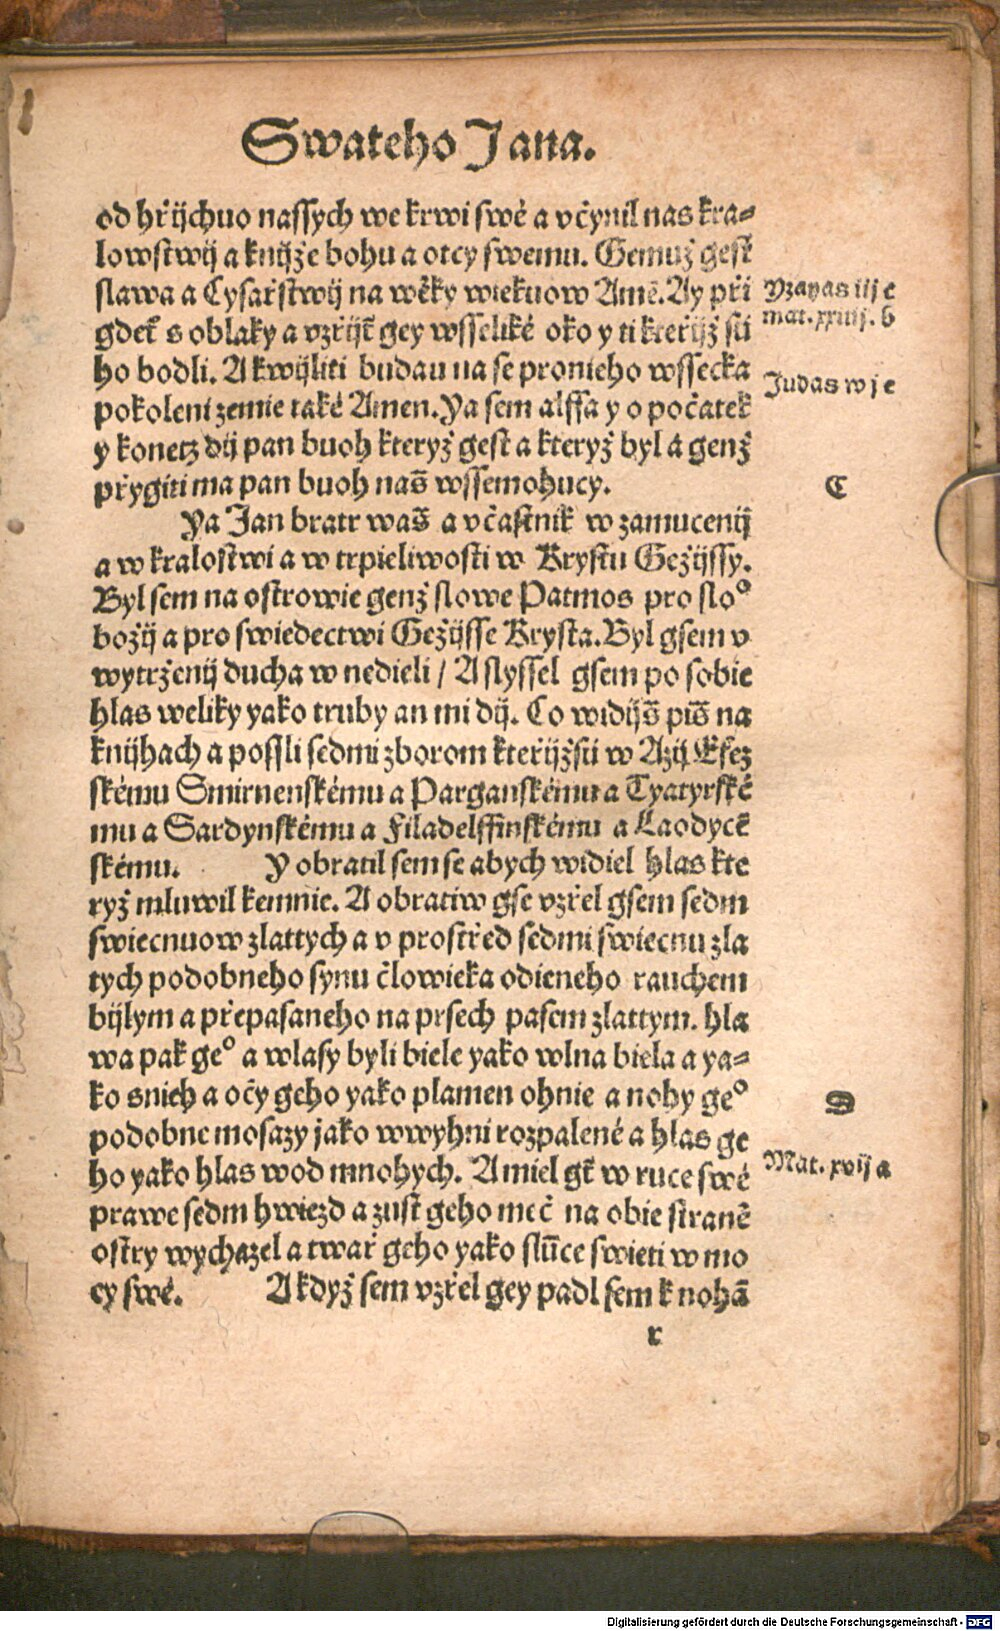 Swateho Jana.
od hřijchuo nassych we krwi swé a včynil nas kra⸗
lowstwij a knijže bohu a otcy swemu. Gemuž gest̃
slawa a Cysařstwij na wěky wiekuow Amē. Ay při
gdet̃ s oblaky a vzřijt̃ gey wsseliké oko y ti kteřijž sú
ho bodli. A kwijliti budau na se pronieho wssecka
pokolení zemie také Amen. Ya sem alffa y o počatek
y konetz dij pan buoh kteryž gest a kteryž byl a genž
přygíti ma pan buoh nas̃ wssemohucy.
Ya Jan bratr was̃ a včastnik w zamucenij
a w kralostwi a w trpieliwosti w Krystu Gežijssy.
Byl sem na ostrowie genž slowe Patmos pro sloº
božij a pro swiedectwi Gežijsse Krysta. Byl gsem v
wytrženij ducha w nedieli / A slyssel gsem po sobie
hlas weliky yako truby an mi dij. Co widijs̃ pis̃ na
knijhach a possli sedmi zborom kteřijž sú w Azij Efez
skému Smirnenskému a Parganskému a Tyatyrské
mu a Sardynskému a Filadelffinskému a Laodycē
skému. Y obratil sem se abych widiel hlas kte
ryž mluwil kemnie. A obratiw gse vzřel gsem sedm
swiecnuow zlattych a v prostřed sedmi swiecnu zla
tych podobneho synu člowieka odieneho rauchem
bijlym a přepasaneho na prsech pasem zlattym. hla
wa pak geº a wlasy byli biele yako wlna biela a ya⸗
ko snieh a očy geho yako plamen ohnie a nohy geº
podobne mosazy jako w wyhni rozpalené a hlas ge
ho yako hlas wod mnohych. A miel gt̃ w ruce swé
prawe sedm hwiezd a zust geho meč na obie stranē
ostry wychazel a twař geho yako slūce swieti w mo
cy swé. A když sem vzřel gey padl sem k nohā
r
Yzayas iij c
mat. xxiiij. b
Judas w j c
C
D
Mat. xvij a
Digitalisierung gefördert durch die Deutsche Forschungsgemeinschaft - DFG